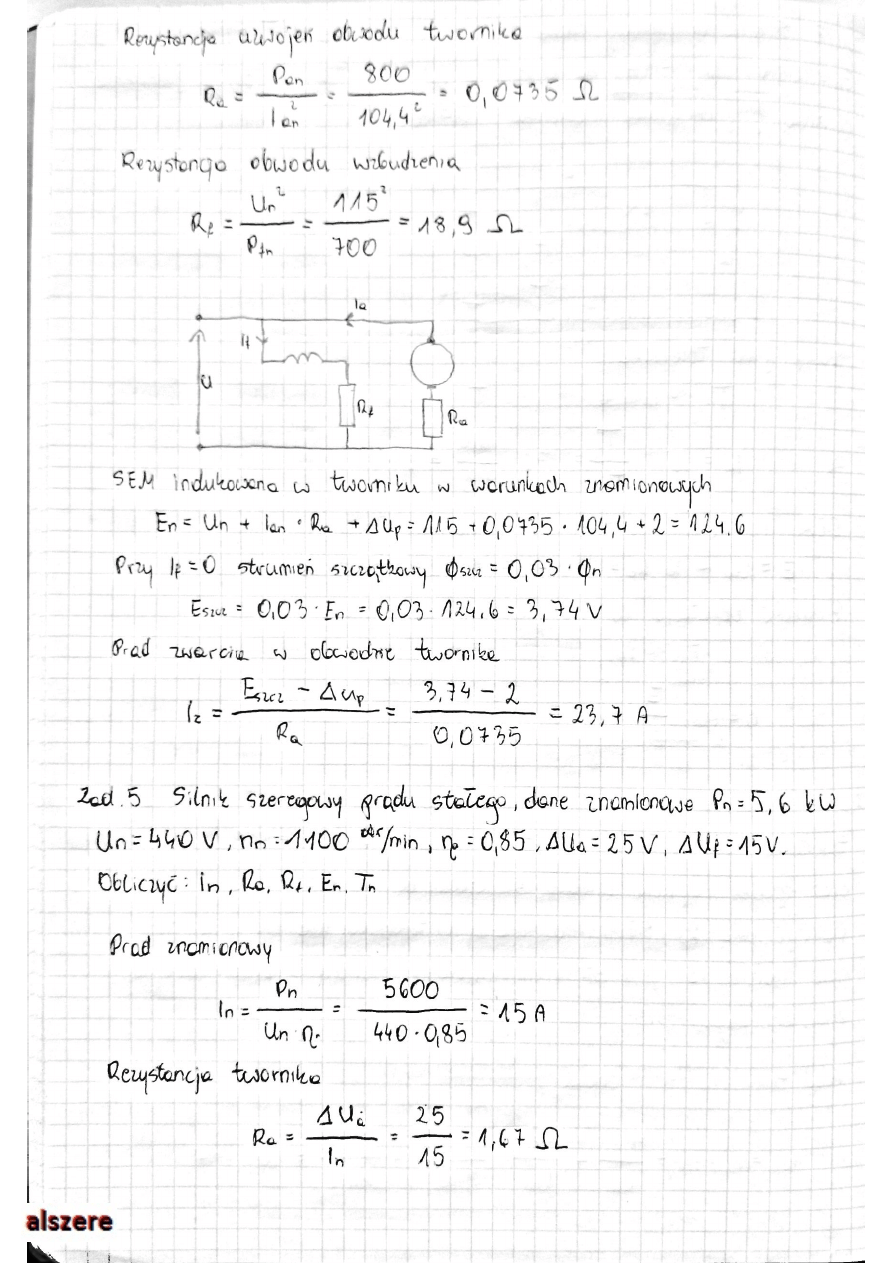 Rezystancja uzwojeń obwodu twornika
Ra = Pan / Ian² = 800 / 104,4² = 0,0735 Ω
Rezystancja obwodu wzbudzenia
Rf = Un² / Pfn = 115² / 700 = 18,9 Ω
Ia
If
U
Rf
Ra
SEM indukowana w tworniku w warunkach znamionowych
En = Un + Ian · Ra + ΔUp = 115 + 0,0735 · 104,4 + 2 = 124.6
Przy If = 0 strumień szczątkowy ϕszcz = 0,03 · ϕn
Eszcz = 0,03 · En = 0,03 · 124.6 = 3,74 V
Prąd zwarcia w obwodzie twornika
Iz = Eszcz - ΔUp / Ra = 3,74 - 2 / 0,0735 = 23,7 A
Zad. 5 Silnik szeregowy prądu stałego, dane znamionowe Pn = 5,6 kW
Un = 440 V, nn = 1100 obr/min, η = 0,85, ΔUa = 25 V, ΔUf = 15V.
Obliczyć: In, Ra, Rf, En, Tn
Prąd znamionowy
In = Pn / Un · η = 5600 / 440 · 0,85 = 15 A
Rezystancja twornika
Ra = ΔUa / In = 25 / 15 = 1,67 Ω
alszere